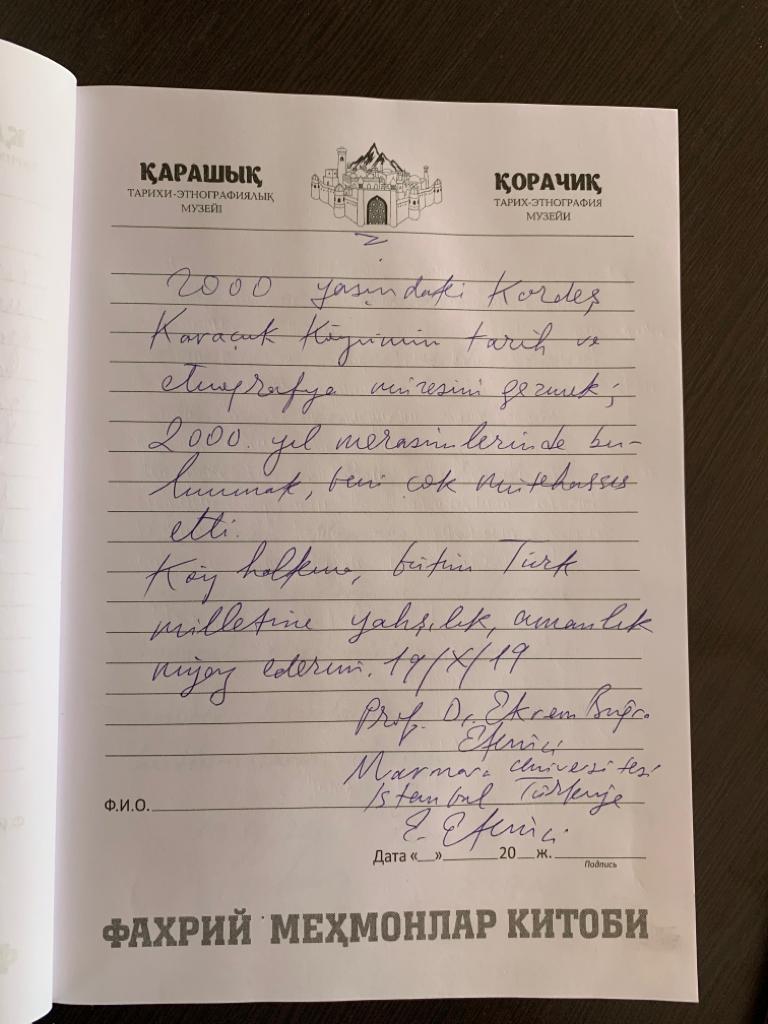 ҚАРАШЫҚ
ТАРИХИ-ЭТНОГРАФИЯЛЫҚ
МУЗЕЙІ
ҚОРАЧИҚ
ТАРИХ-ЭТНОГРАФИЯ
МУЗЕЙИ
2000 yaşındaki Kardeş
Karaçuk Köyünün tarih ve
etnografya müzesini gezmek;
2000. yıl merasimlerinde bu-
lunmak, beni çok mütehassıs
etti.
Köy halkına, bütün Türk
milletine yahşılık, amanlık
niyaz ederim. 19/X/19
Prof. Dr. Ekrem Buğra
Ekinci
Marmara Üniversitesi
Istanbul Türkiye
E. Ekinci
Ф.И.О.
Дата «__»______20__ж.
Подпись
ФАХРИЙ МЕҲМОНЛАР КИТОБИ